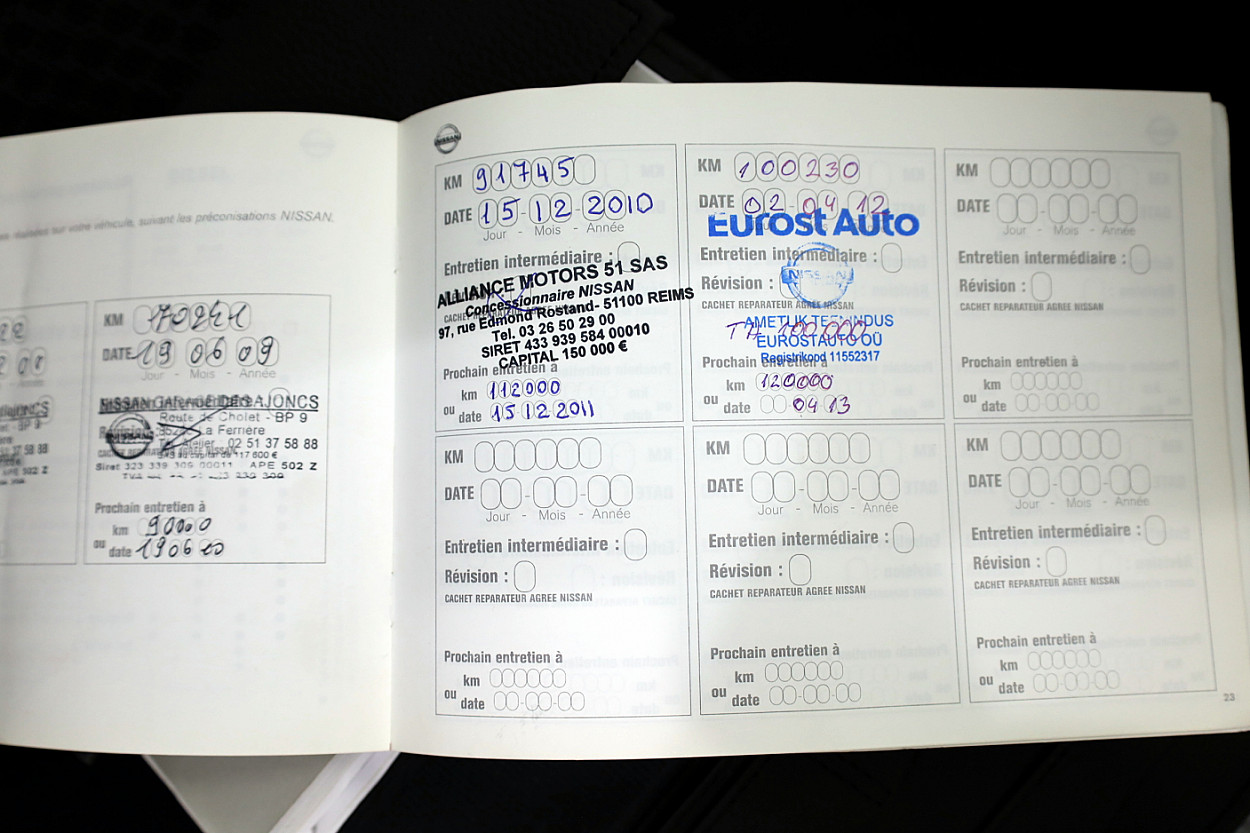 réalisées sur votre véhicule, suivant les préconisations NISSAN.
KM
DATE 19 06 09
Jour - Mois - Année
NISSAN GARAGE DES AJONCS
Route de Cholet - BP 9
La Ferrière
Atelier : 02 51 37 58 88
APE 502 Z
Prochain entretien à
km 90000
ou date 19 06 10
NISSAN
KM 91745
DATE 15-12-2010
Jour - Mois - Année
Entretien intermédiaire :
ALLIANCE MOTORS 51 SAS
Concessionnaire NISSAN
97, rue Edmond Rostand- 51100 REIMS
Tel. 03 26 50 29 00
SIRET 433 939 584 00010
CAPITAL 150 000 €
Prochain entretien à
km 112000
ou date 15 12 2011
KM 100230
DATE 02-04 12
Eurost Auto
Jour - Mois - Année
Entretien intermédiaire :
NISSAN
Révision :
CACHET REPARATEUR AGREE NISSAN
AMETLIK TEENINDUS
TH 100.000
EUROSTAUTO OÜ
Registrikood 11552317
Prochain entretien à
km 120000
ou date 04 13
KM
DATE
Jour - Mois - Année
Entretien intermédiaire :
Révision :
CACHET REPARATEUR AGREE NISSAN
Prochain entretien à
km
ou date
KM
DATE
Jour - Mois - Année
Entretien intermédiaire :
Révision :
CACHET REPARATEUR AGREE NISSAN
Prochain entretien à
km
ou date
KM
DATE
Jour - Mois - Année
Entretien intermédiaire :
Révision :
CACHET REPARATEUR AGREE NISSAN
Prochain entretien à
km
ou date
KM
DATE
Jour - Mois - Année
Entretien intermédiaire :
Révision :
CACHET REPARATEUR AGREE NISSAN
Prochain entretien à
km
ou date
23